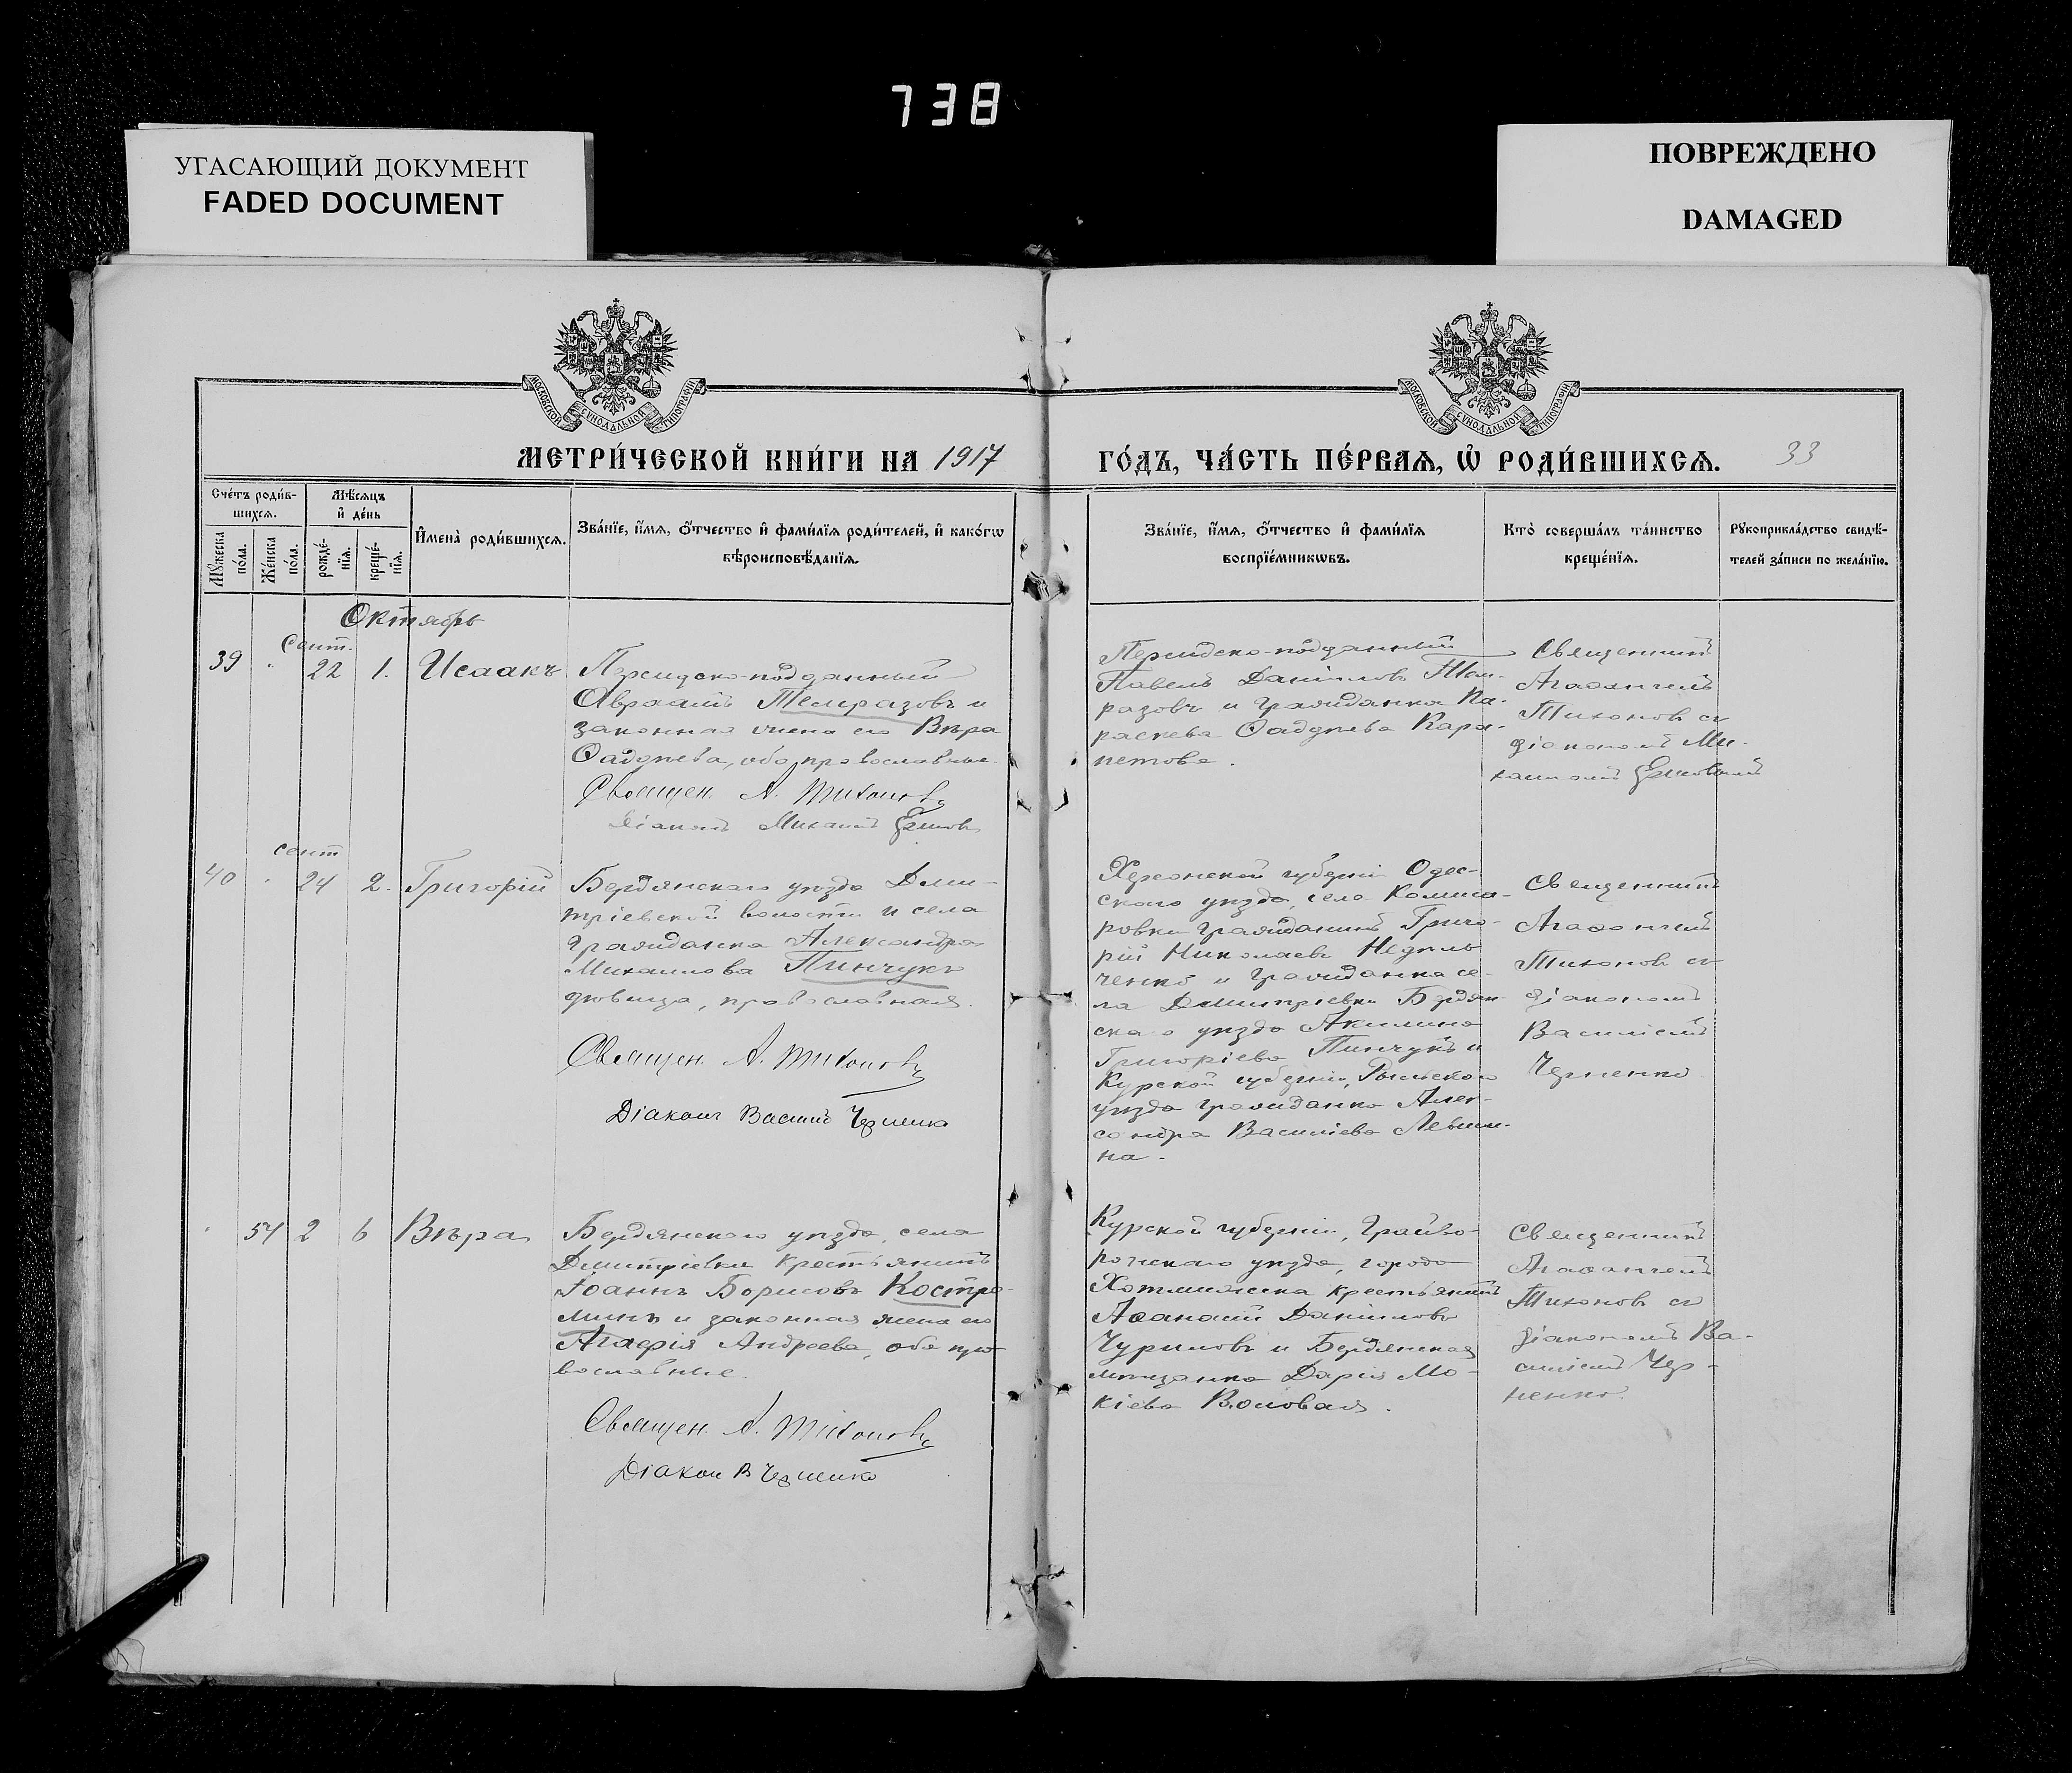 738
УГАСАЮЩИЙ ДОКУМЕНТ
FADED DOCUMENT
ПОВРЕЖДЕНО
DAMAGED
МОСКОВСКОЙ СУНОДАЛЬНОЙ ТИПОГРАФІИ
МОСКОВСКОЙ СУНОДАЛЬНОЙ ТИПОГРАФІИ
МЕТРИ́ЧЕСКОЙ КНИ́ГИ НА 1917
ГО́ДЪ, ЧА́СТЬ ПЕ́РВАѦ, Ѡ҆ РОДИ́ВШИХСѦ. 33
Сче́тъ роди́в-
шихсѧ.
Мꙋжеска
по́ла.
Же́нска
по́ла.
Мѣ́сѧцъ
и҆ де́нь
рожде́-
нїѧ.
креще́-
нїѧ.
И҆мена̀ роди́вшихсѧ.
Зва́нїе, и҆́мѧ, ѻ҆́тчество и҆ фами́лїѧ роди́телей, и҆ како́гѡ
вѣроисповѣ́данїѧ.
Зва́нїе, и҆́мѧ, ѻ҆́тчество и҆ фами́лїѧ
воспрїе́мникѡвъ.
Кто̀ соверша́лъ та́инство
креще́нїѧ.
Рꙋкоприкла́дство свидѣ́-
телей за́писи по жела́нїю.
Октябрь
Сент.
39 22 1. Исаакъ
Персидско-подданный
Авраамъ Темразовъ и
законная жена его Вѣра
Фаддѣева, оба православные.
Священ. А. Тихоновъ
Діаконъ Михаилъ
Персидско-подданный
Павелъ Даніиловъ Тем-
разовъ и гражданка Па-
раскева Фаддѣева Кара-
петова.
Священникъ
Агафангелъ
Тихоновъ съ
діакономъ Ми-
хаиломъ
сент
40 24 2. Григорій
Бердянскаго уѣзда Дми-
тріевской волости и села
гражданка Александра
Михаилова Пинчукъ
дѣвица, православная.
Священ. А. Тихоновъ
Діаконъ Василій Черненко
Херсонской губерніи Одес-
скаго уѣзда, села Комиса-
ровки гражданинъ Григо-
рій Николаевъ Недѣль
ченко и гражданка се-
ла Дмитріевки Бердян-
скаго уѣзда Акилина
Григоріева Пинчукъ и
Курской губерніи, Рыльскаго
уѣзда гражданка Алек-
сандра Василіева Левши-
на.
Священникъ
Агафангелъ
Тихоновъ съ
діакономъ
Василіемъ
Черненко
54 2 6 Вѣра
Бердянскаго уѣзда, села
Дмитріевки крестьянинъ
Іоаннъ Борисовъ Костро-
минъ и законная жена его
Агафія Андреева, оба пра-
вославные.
Священ. А. Тихоновъ
Діакон В Черненко
Курской губерніи, Грайво-
ронскаго уѣзда, города
Хотмижска крестьянинъ
Афанасій Даніиловъ
Чуриловъ и Бердянская
мѣщанка Дарія Мо-
кіева Воловая.
Священникъ
Агафангелъ
Тихоновъ съ
діакономъ Ва-
силіемъ Чер-
ненко.